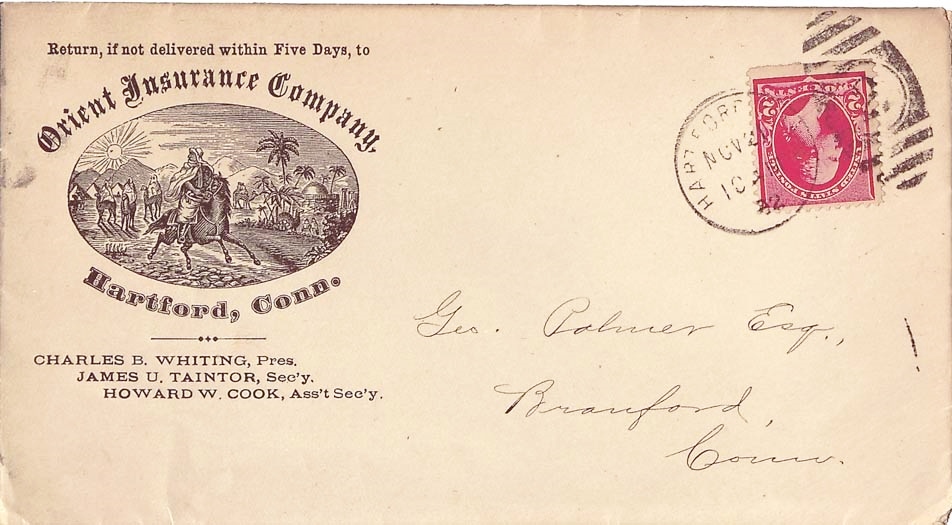 Return, if not delivered within Five Days, to
Orient Insurance Company,
Hartford, Conn.
CHARLES B. WHITING, Pres.
JAMES U. TAINTOR, Sec'y.
HOWARD W. COOK, Ass't Sec'y.
HARTFORD
NOV 2
10
92
2 2
Geo. Palmer Esq.,
Branford,
Conn.